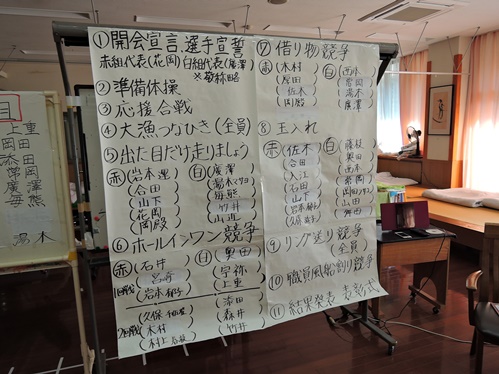 上重
岡田
添田
常岡
廣澤
毎熊
湯木
① 開会宣言、選手宣誓
赤組代表(花岡) 白組代表(廣澤)
※敬称略
② 準備体操
③ 応援合戦
④ 大漁つなひき(全員)
⑤ 出た目だけ走りましょう
赤 岩本 運
合田
山下
花岡
岡殿
白 廣澤
湯木
毎熊
竹井
山近
⑥ ホールインワン競争
赤 石井
宮崎
岩本
白 奥田
上重
1回戦
2回戦
久保
木村
村上
添田
森井
竹井
⑦ 借り物競争
赤 木村
原田
佐木
岡殿
白 西本
常岡
湯木
廣澤
⑧ 玉入れ
赤 佐木
合田
入江
石田
山下
岩本
久保
白 藤枝
奥田
西本
常岡
岡田
山田
舛田
⑨ リング送り競争
(全員)
⑩ 職員風船割り競争
⑪ 結果発表 表彰式